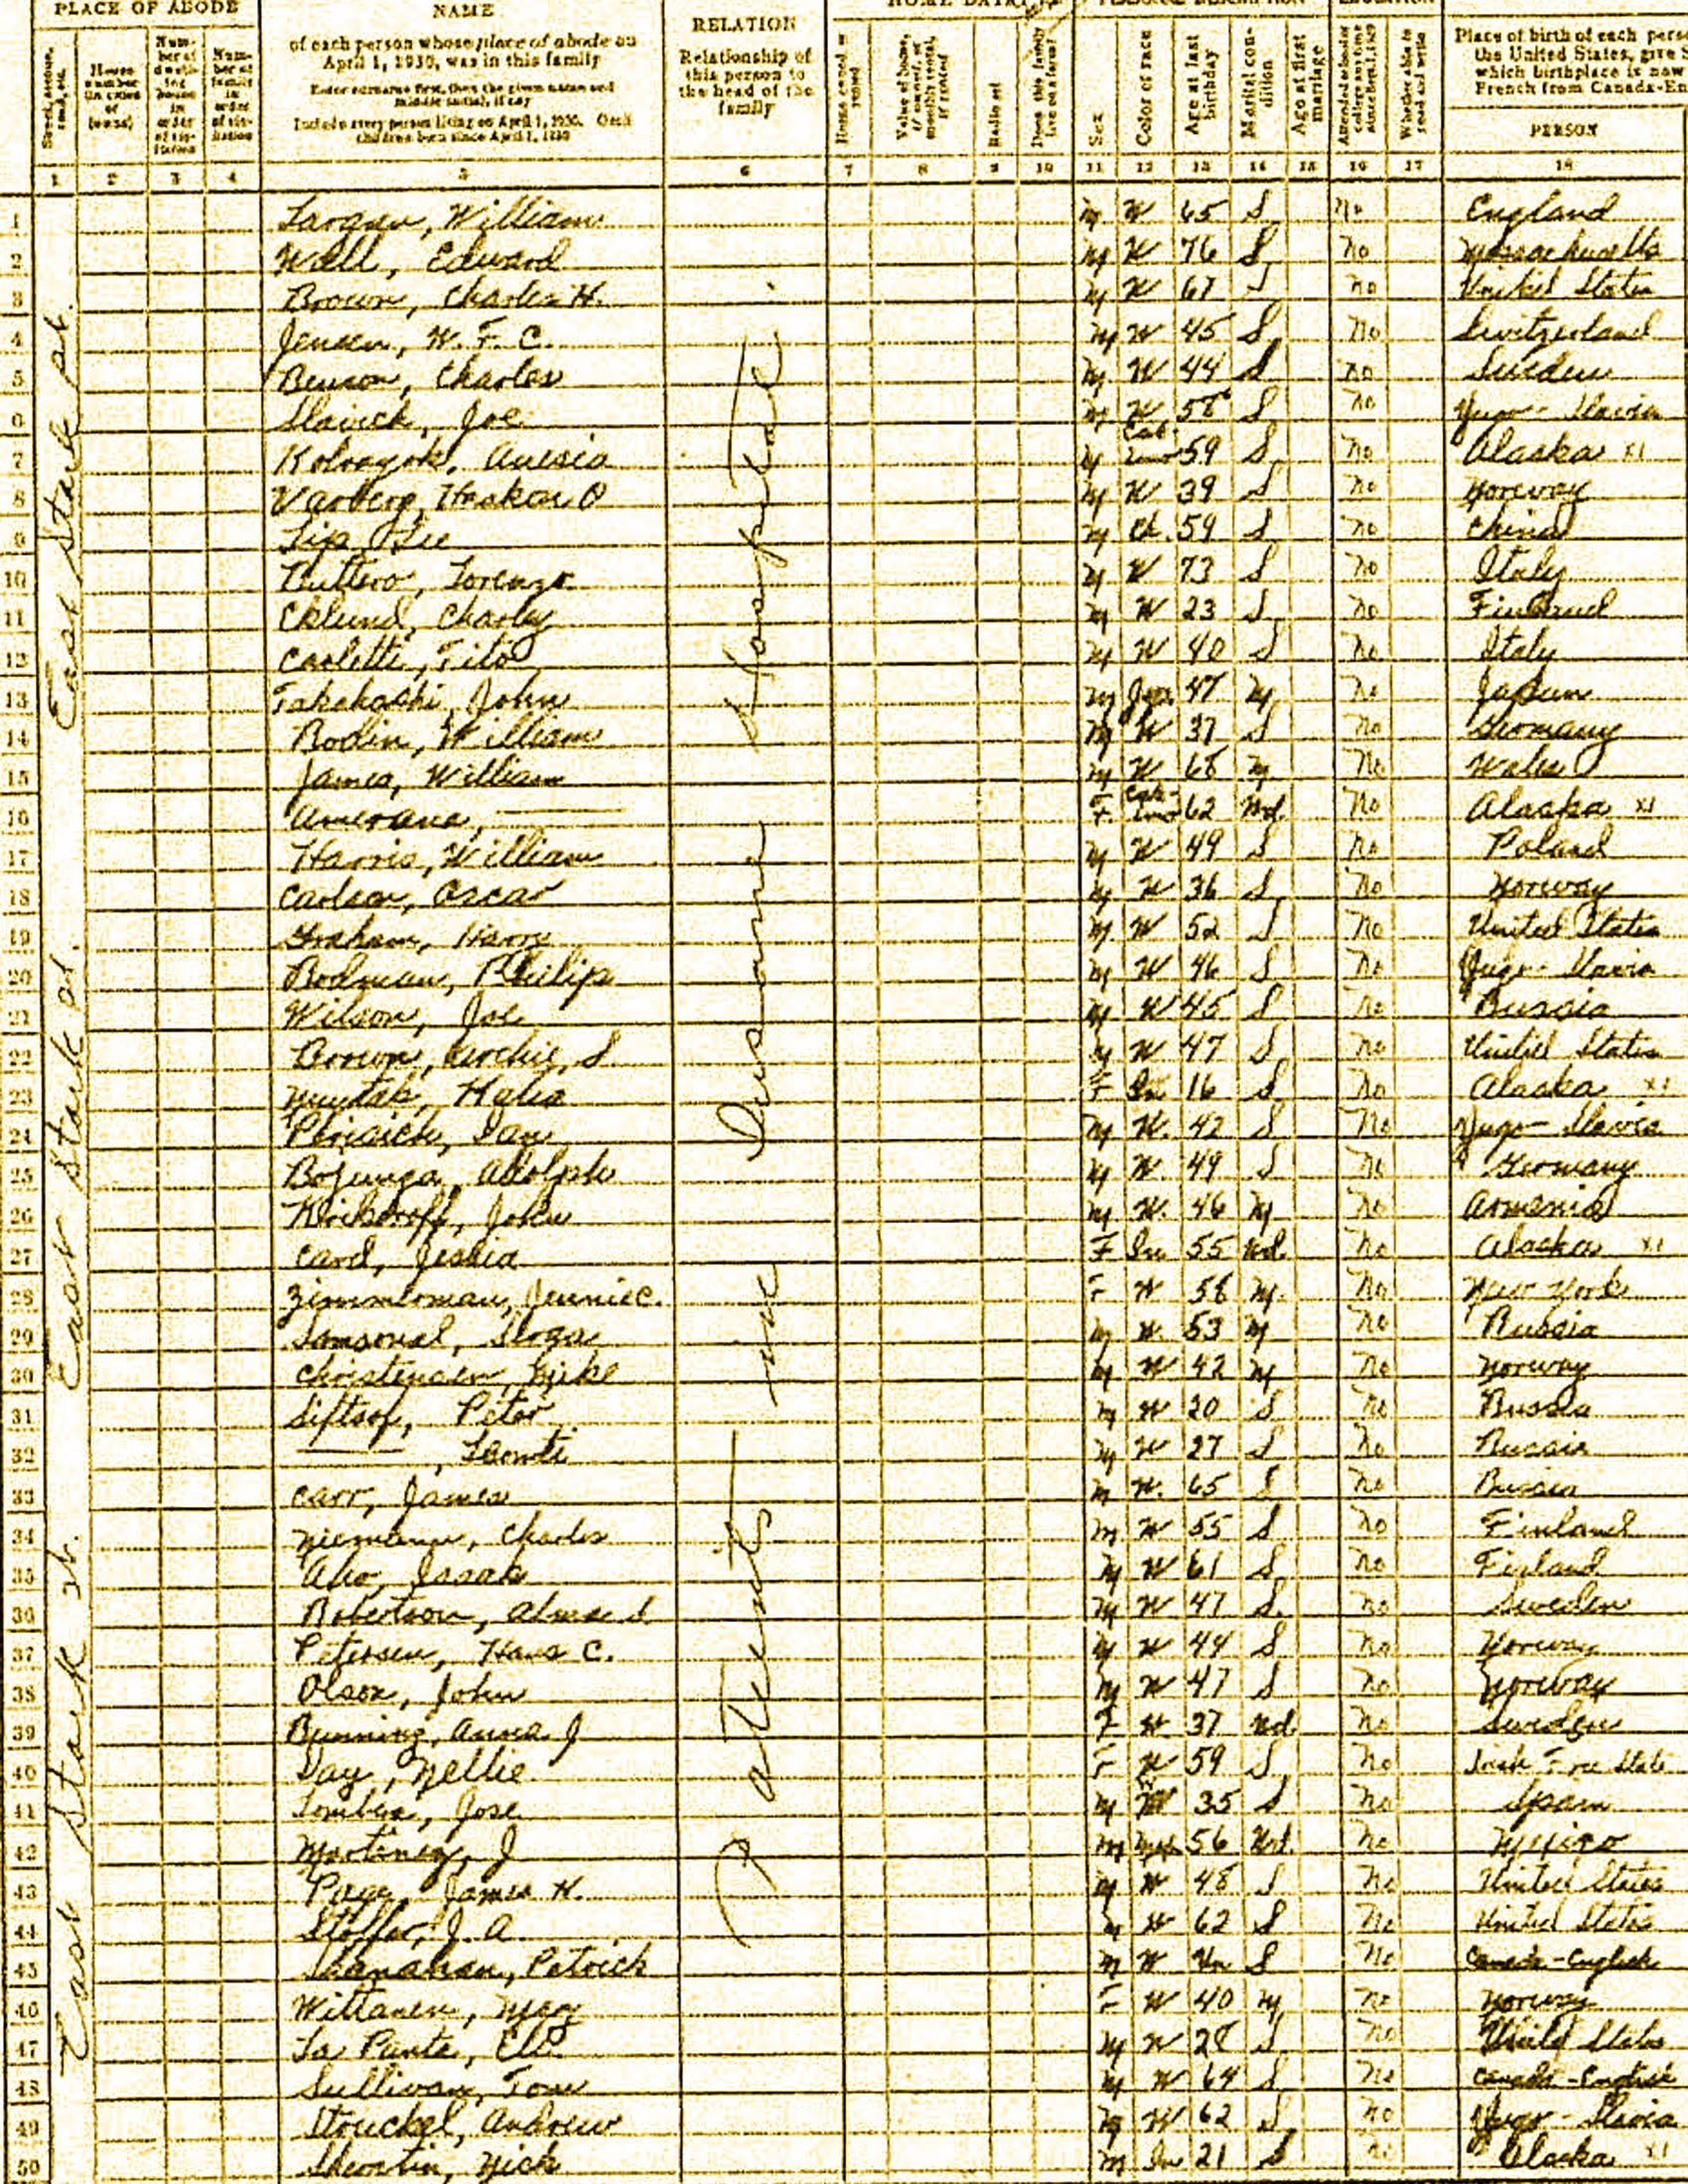 PLACE OF ABODE
NAME
of each person whose place of abode on
April 1, 1930, was in this family
Enter surname first, then the given name and
middle initial, if any
Include every person living on April 1, 1930. Omit
children born since April 1, 1930
RELATION
Relationship of
this person to
the head of the
family
HOME DATA
Street, avenue, road, etc.
House number (in cities or towns)
Number of dwelling house in order of visitation
Number of family in order of visitation
Home owned or rented
Value of home, if owned, or monthly rental, if rented
Radio set
Does this family live on a farm?
Sex
Color or race
Age at last birthday
Marital condition
Age at first marriage
Attended school or college any time since Sept. 1, 1929
Whether able to read and write
Place of birth of each pers
the United States, give S
which birthplace is now
French from Canada-En
PERSON
1 2 3 4 5 6 7 8 9 10 11 12 13 14 15 16 17 18
East Stark St.
East Stark St.
East Stark St.
East Stark St.
Patients in Insane Hospital
1 William M W 65 S No England
2 Wall, Edward M W 76 S No Massachusetts
3 Brown, Charles H. M W 67 S No United States
4 Jensen, W. F. C. M W 45 S No Switzerland
5 Benson, Charles M W 44 S No Sweden
6 Slavich, Joe M W 58 S No Yugo-Slavia
7 M 59 S No Alaska X1
8 Varberg, Haakon O M W 39 S No Norway
9 M Ch. 59 S No China
10 Buttero, Lorenzo M W 73 S No Italy
11 Eklund, Charley M W 23 S No Finland
12 Caoletti, Tito M W 40 S No Italy
13 Takahashi, John M Jap. 47 M No Japan
14 Bodin, William M W 37 S No Germany
15 James, William M W 68 M No Wales
16 F 62 Wd. No Alaska X1
17 Harris, William M W 49 S No Poland
18 Carlson, Oscar M W 36 S No Norway
19 Graham, Harry M W 52 S No United States
20 Bodman, Philip M W 46 S No Yugo-Slavia
21 Wilson, Joe M W 45 S No Russia
22 Brown, Archie, S M W 47 S No United States
23 F In 16 S No Alaska X1
24 Dan M W. 42 S No Yugo-Slavia
25 Bojunga, Adolph M W. 49 S No Germany
26 John M W. 46 M No Armenia
27 F In 55 Wd. No Alaska X1
28 Zimmerman, Jennie C. F W 58 M No New York
29 M W 53 M No Russia
30 Christensen, M W 42 M No Norway
31 Siftsof, Peter M W 20 S No Russia
32 M W 27 S No Russia
33 Carr, James M W. 65 S No Russia
34 Niemann, Charles M W 55 S No Finland
35 Aho, Isaak M W 61 S No Finland
36 Robertson, M W 47 S. No Sweden
37 Petersen, Hans C. M W 44 S No Norway
38 Olson, John M W 47 S No Norway
39 Bunning, Anna J F W 37 Wd. No Sweden
40 Day, Nellie F W 59 S No Irish Free State
41 Jose M W 35 S No Spain
42 Martinez, J M Mex 56 Wd. No Mexico
43 Page, James H. M W 48 S No United States
44 Stoffer, J. A M W 62 S No United States
45 Shanahan, Patrick M W Un S No Canada-English
46 Wittanen, Mary F W 40 M No Norway
47 La Pante, Eli M W 28 S No United States
48 Sullivan, Tom M W 64 S No Canada-English
49 Struckel, Andrew M W 62 S No Yugo-Slavia
50 Nick M In 21 S No Alaska X1